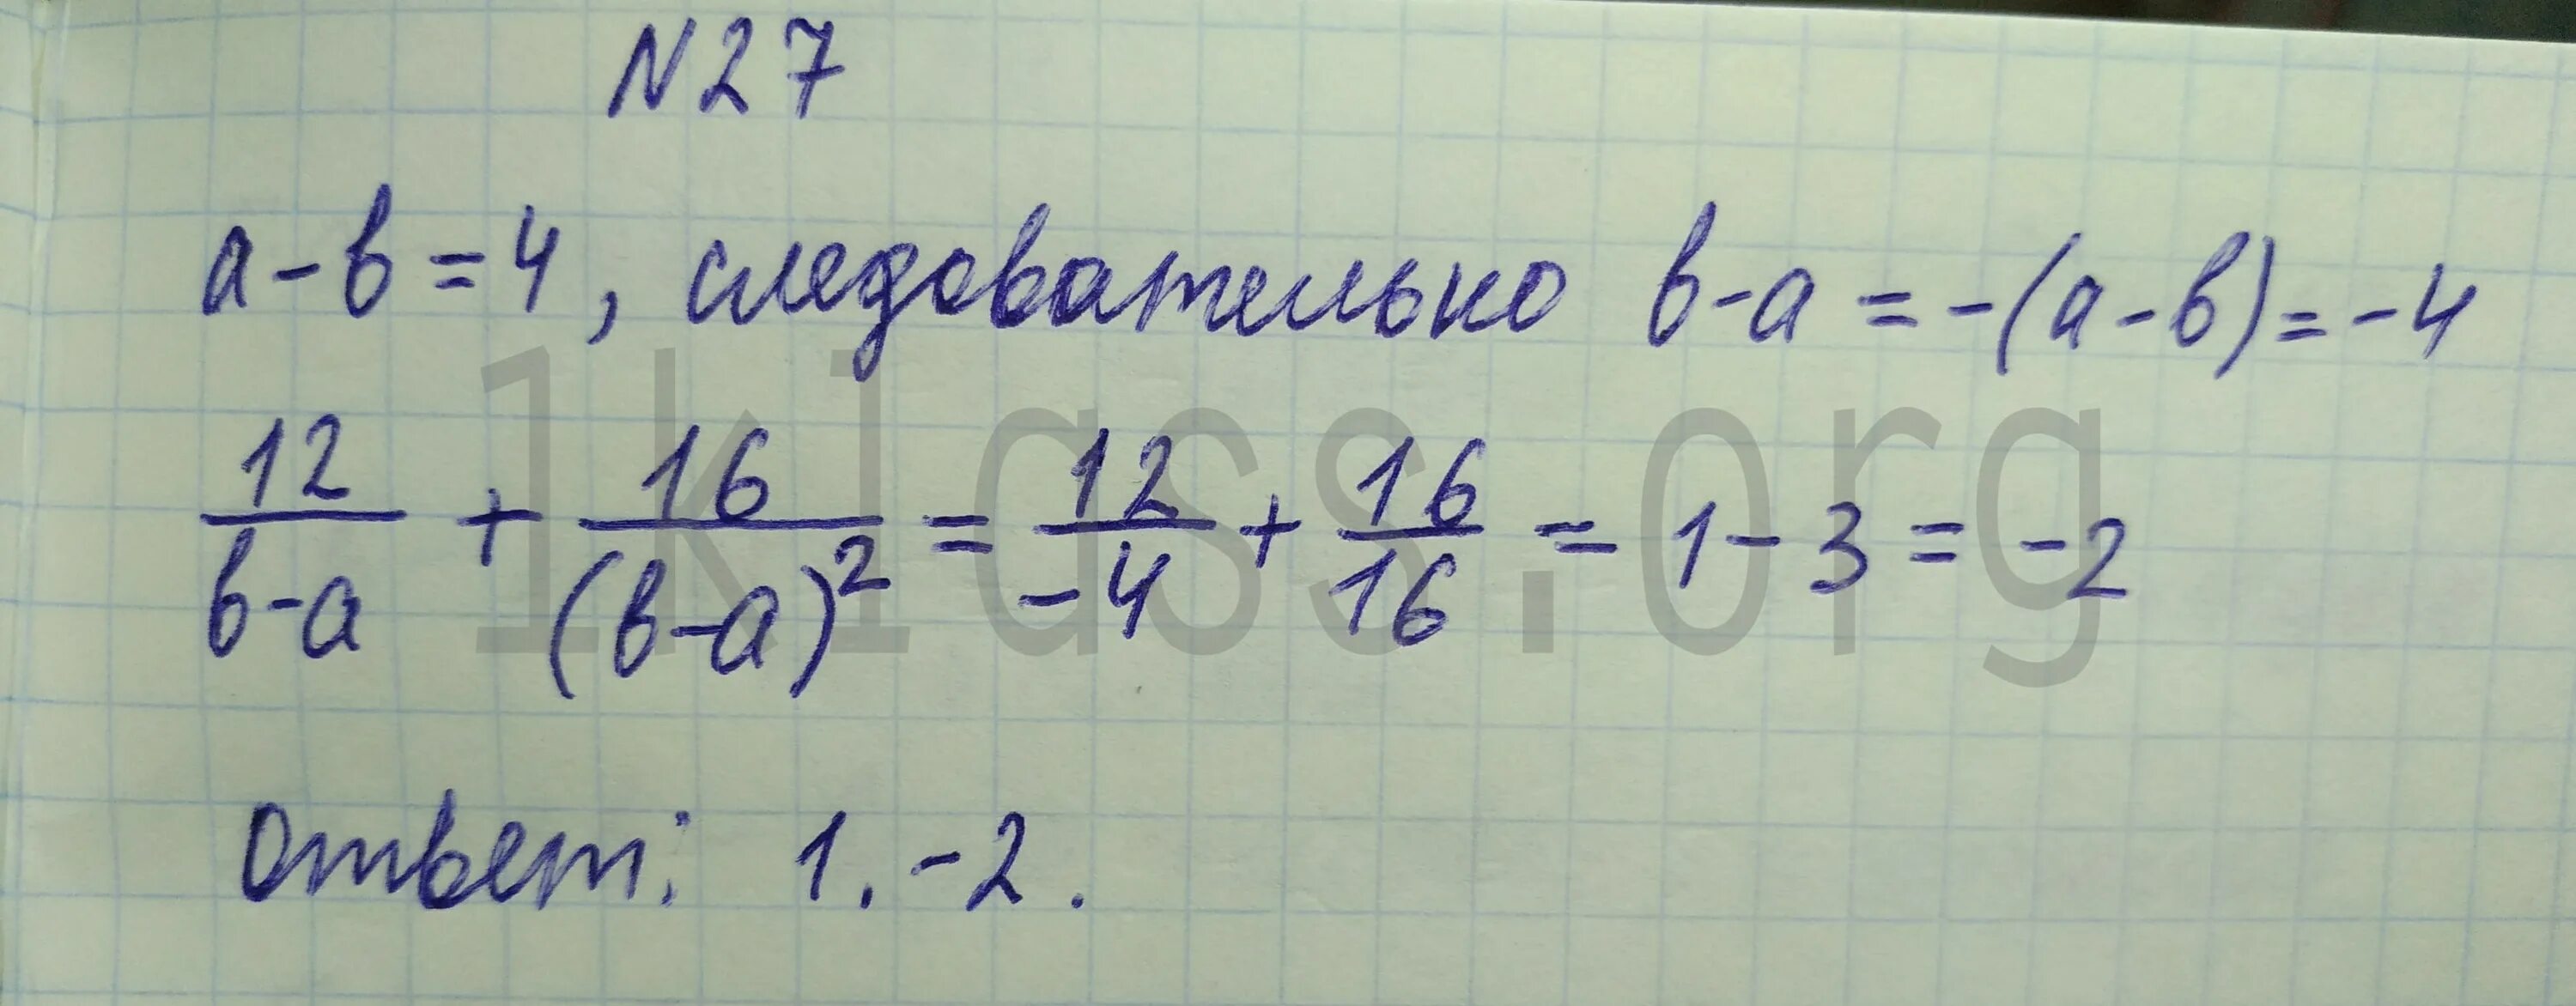 N27
a-b=4, следовательно b-a=-(a-b)=-4
12/(b-a) + 16/(b-a)² = 12/-4 + 16/16 = 1-3 = -2
1klass.org
Ответ: 1. -2.